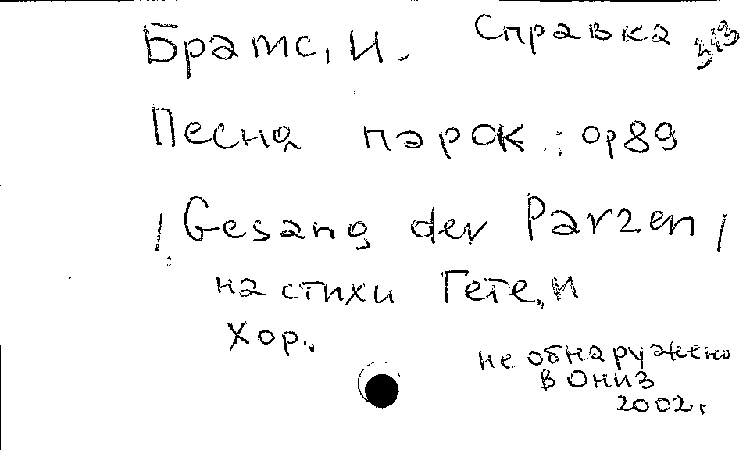 Брамс, И. Справка 343
Песня парок : ор 89
/ Gesang der Parzen /
на стихи Гете, И
Хор.
не обнаружено
в ОНИЗ
2002г.